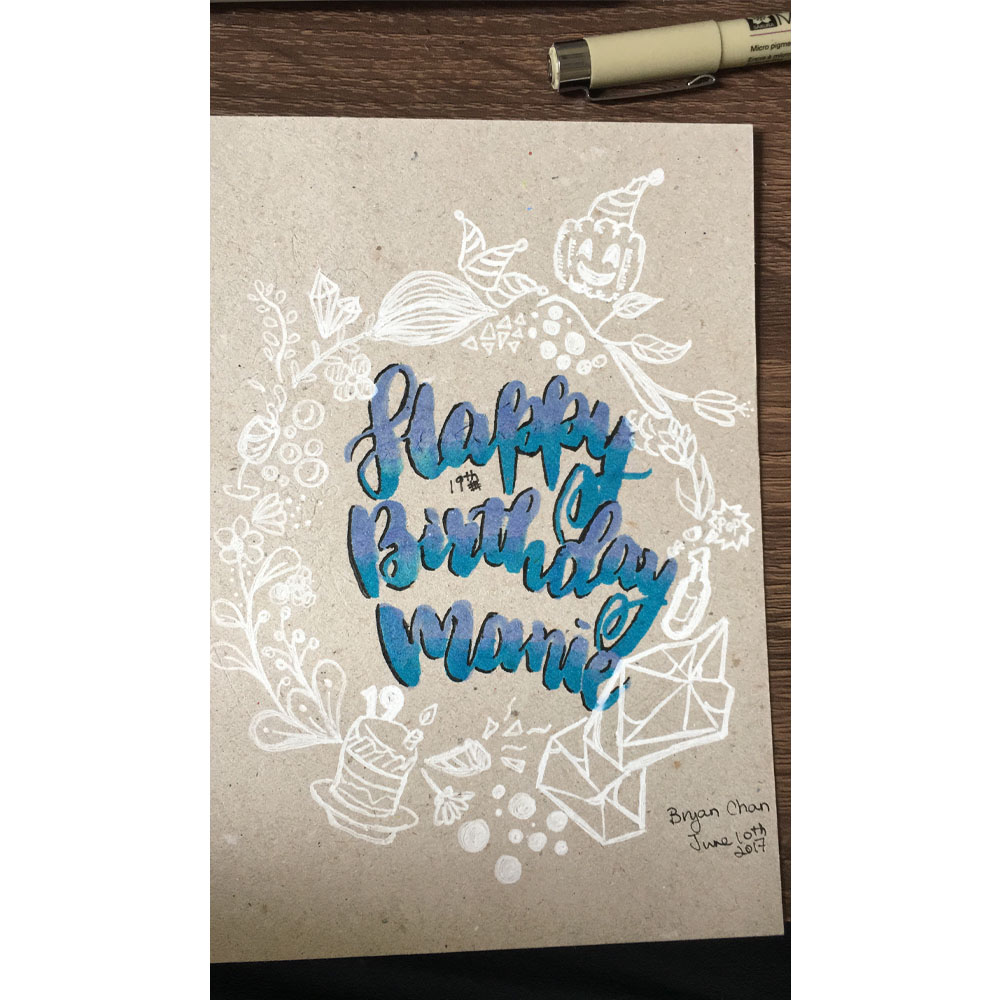 M
Micro pigma
POP
Happy
19th
Birthday
Manie
19
Bryan Chan
June 10th
2017